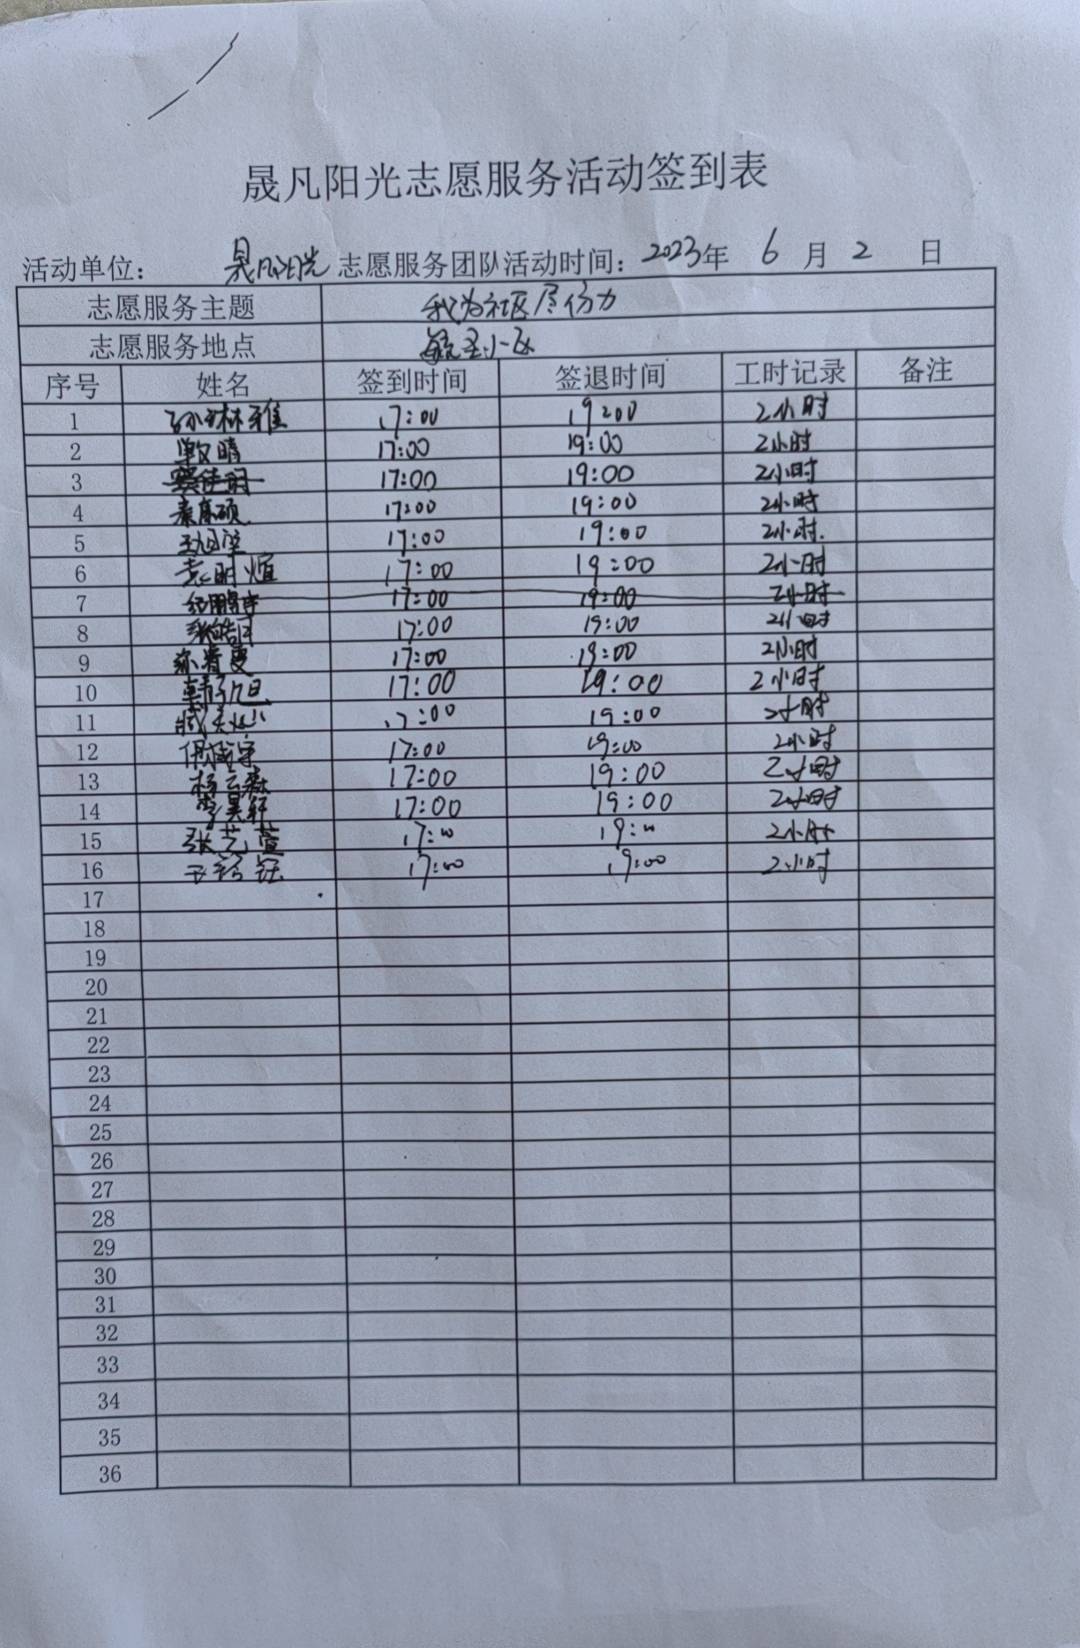 晟凡阳光志愿服务活动签到表
活动单位： 晟凡阳光 志愿服务团队活动时间：2023年 6 月 2 日
志愿服务主题 我为社区尽份力
志愿服务地点 小区
序号 姓名 签到时间 签退时间 工时记录 备注
1 孙林雅 17:00 19:00 2小时
2 晴 17:00 19:00 2小时
3 17:00 19:00 2小时
4 秦硕 17:00 19:00 2小时
5 17:00 19:00 2小时
6 袁明煊 17:00 19:00 2小时
7 鹏宇 17:00 19:00 2小时
8 17:00 19:00 2小时
9 17:00 19:00 2小时
10 韩旭 17:00 19:00 2小时
11 臧 17:00 19:00 2小时
12 17:00 19:00 2小时
13 杨云森 17:00 19:00 2小时
14 李昊轩 17:00 19:00 2小时
15 张艺萱 17:00 19:00 2小时
16 王钰 17:00 19:00 2小时
17
18
19
20
21
22
23
24
25
26
27
28
29
30
31
32
33
34
35
36